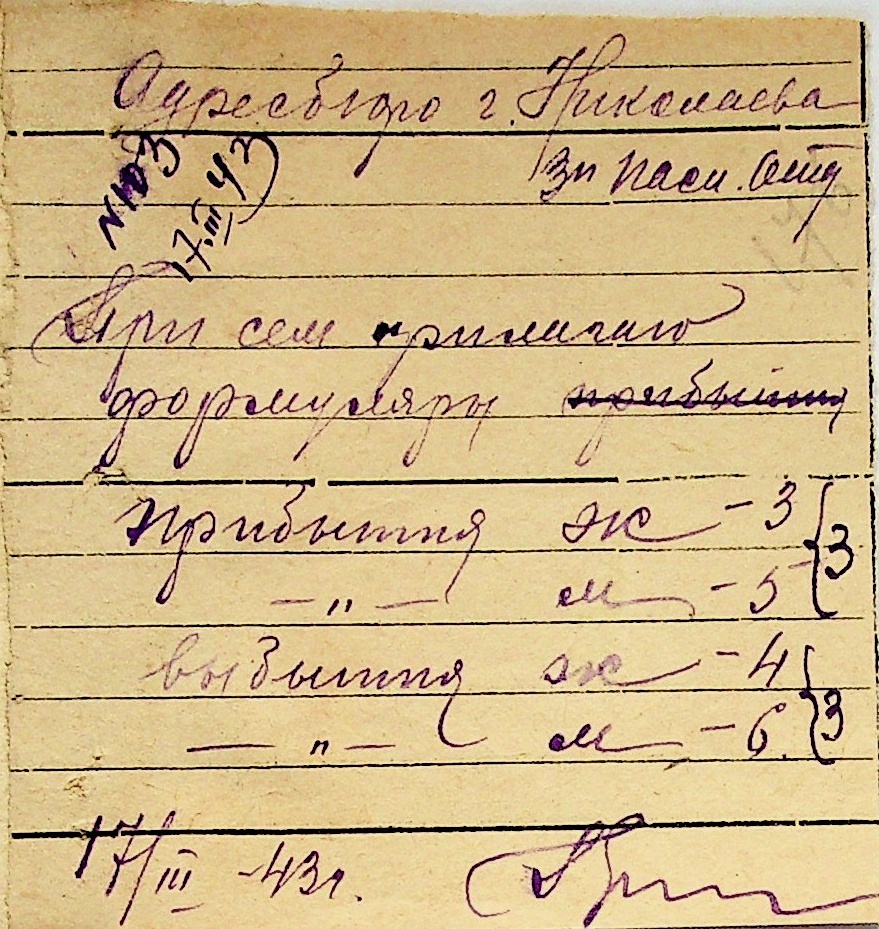 Адресбюро г. Николаева
Зп пасп. Отд
N 103
17.III 43
При сем прилагаю
формуляры прибытия
прибытия ж - 3 } 3
— " — м - 5
выбытия ж - 4 } 3
— " — м - 6
17/III - 43 г.